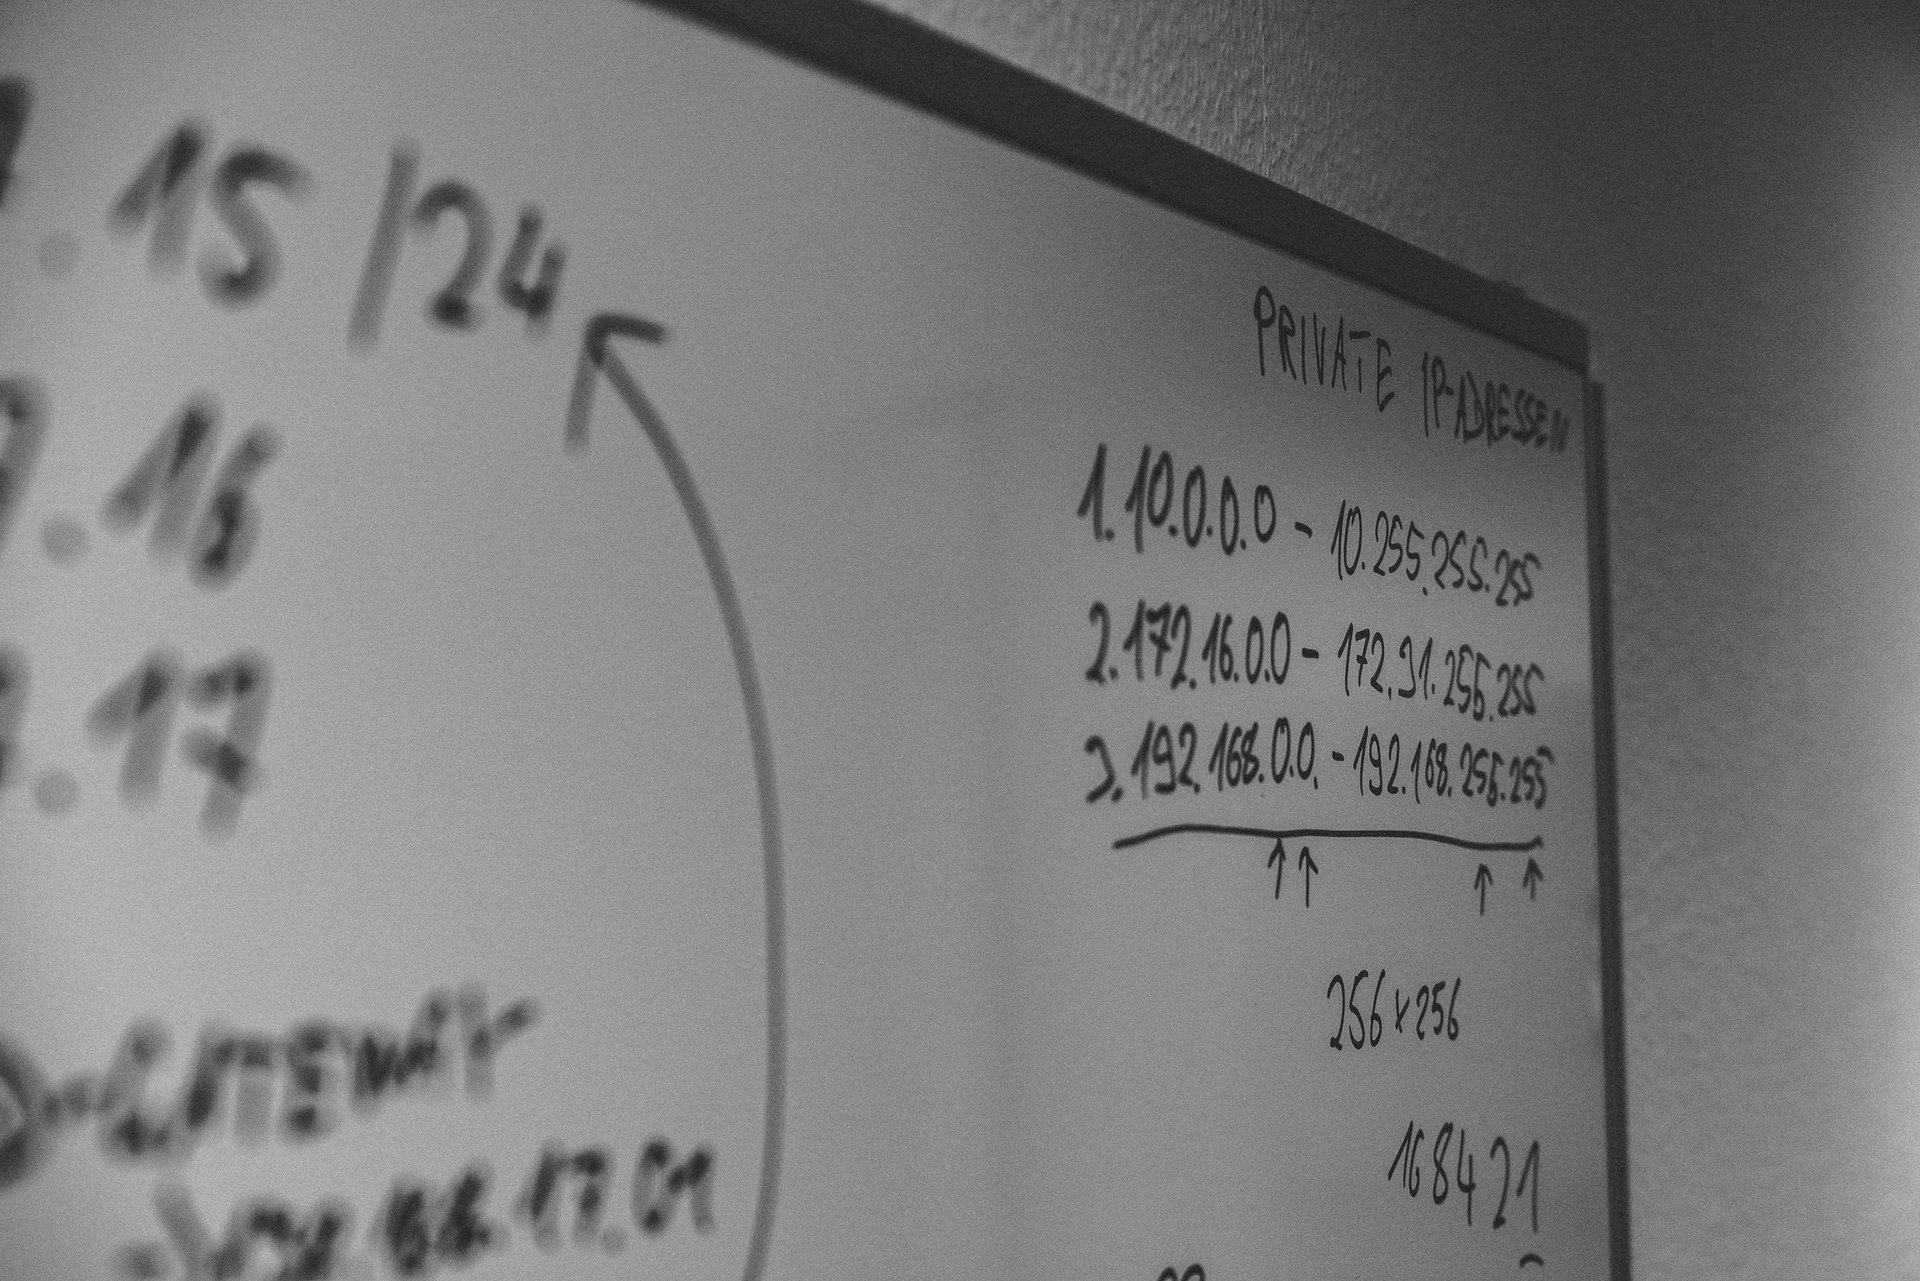 .15/24
.16
.17
GATEWAY
PRIVATE IP-ADRESSEN
1. 10.0.0.0 - 10.255.255.255
2. 172.16.0.0 - 172.31.255.255
3. 192.168.0.0. - 192.168.255.255
256x256
168421